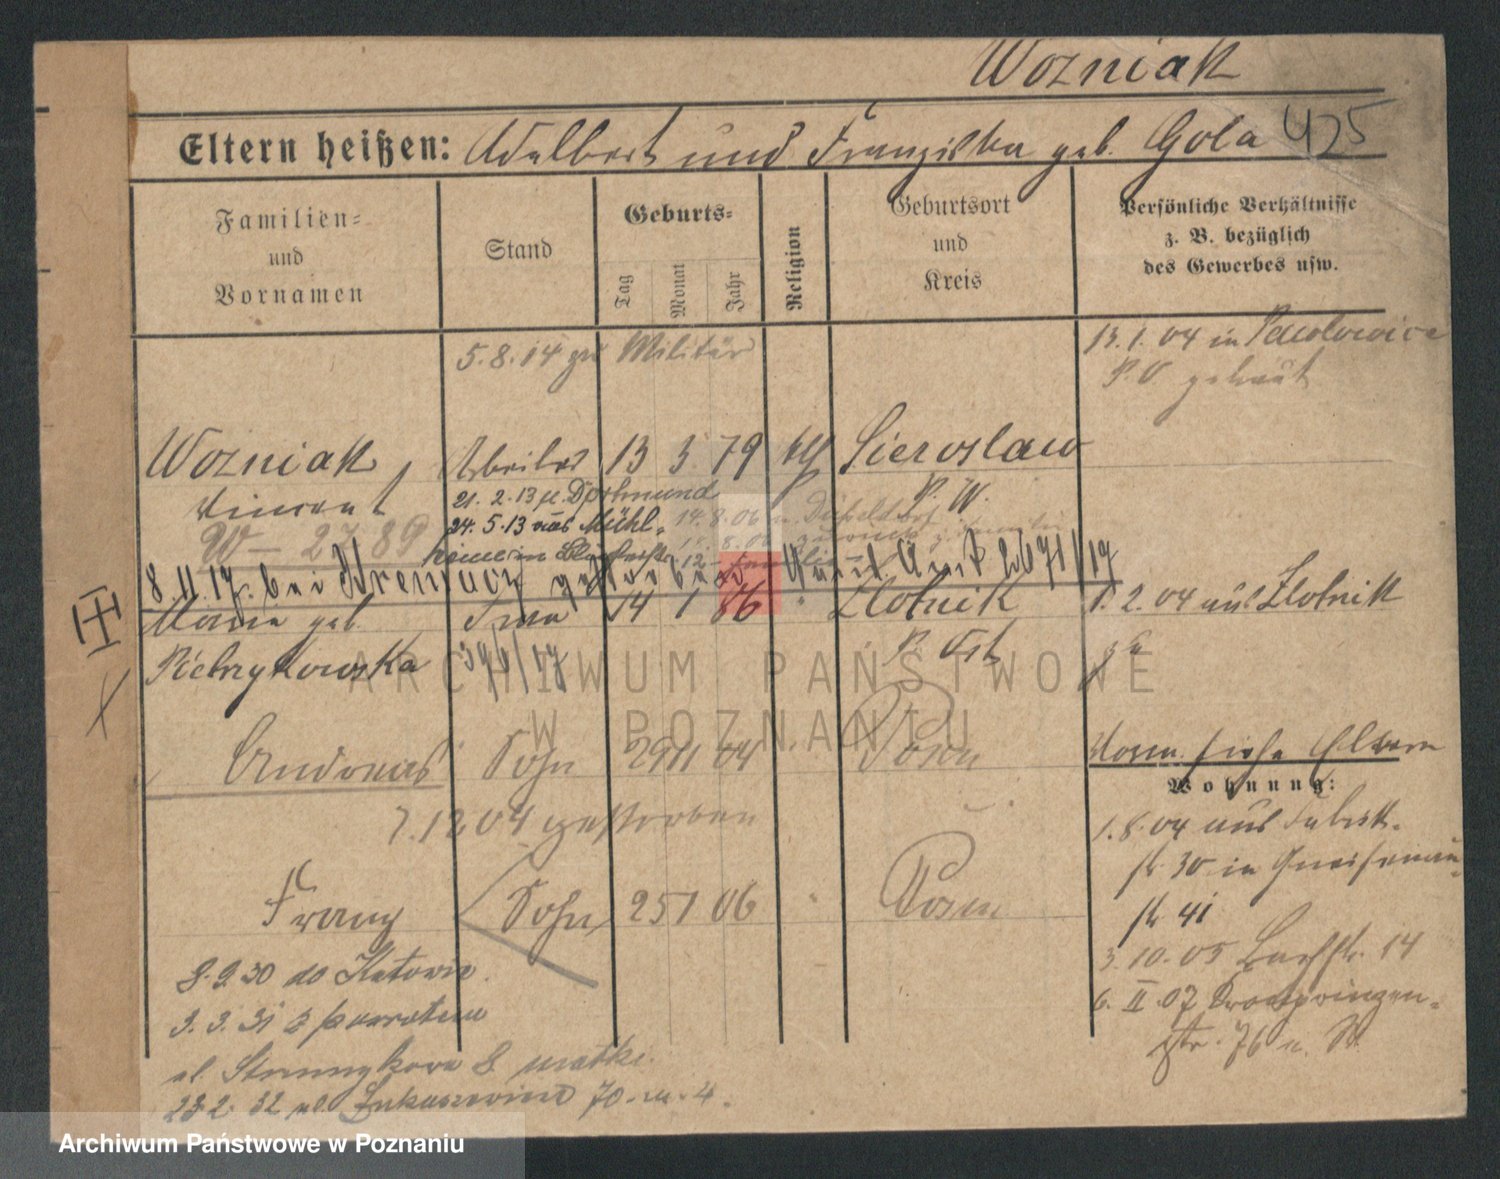 Wozniak
Eltern heißen: Adalbert und Franziska geb. Gola 425
Familien-
und
Vornamen
Stand
Geburts-
Tag
Monat
Jahr
Religion
Geburtsort
und
Kreis
Persönliche Verhältnisse
z. B. bezüglich
des Gewerbes usw.
5.8.14 zu Militär
13.1.04 in
P.O. getraut
Wozniak, Arbeiter 13 3 79 kth Sieroslaw
Vincent 21.2.13 n. Dortmund P. W.
24.5.13 aus Mühl- 14.8.06 n. Düsseldorf
W - 2789 heim
8.11.17. bei gestorben
Marie geb. Frau 14 1 86 " Zlotnik 1.2.04 aus Zlotnik
Pietrzykowska P. Ost
Andreas Sohn 29 11 04 Posen Vorm. siehe Eltern
Wohnung:
7.12 04 gestorben
1.8.04 aus Fabrik-
str 30 in Gneisenau-
str 41
Franz Sohn 25 1 06 Posen
3.10.05 Bachstr. 14
8.9.30 do Katowic.
6.II.07 Kronprinzen-
str. 76
3.3.31 z powrotem
ul. 8 matki.
23.2.32 ul. Łukaszewicza 70 m. 4.
ARCHIWUM PAŃSTWOWE
W POZNANIU
Archiwum Państwowe w Poznaniu